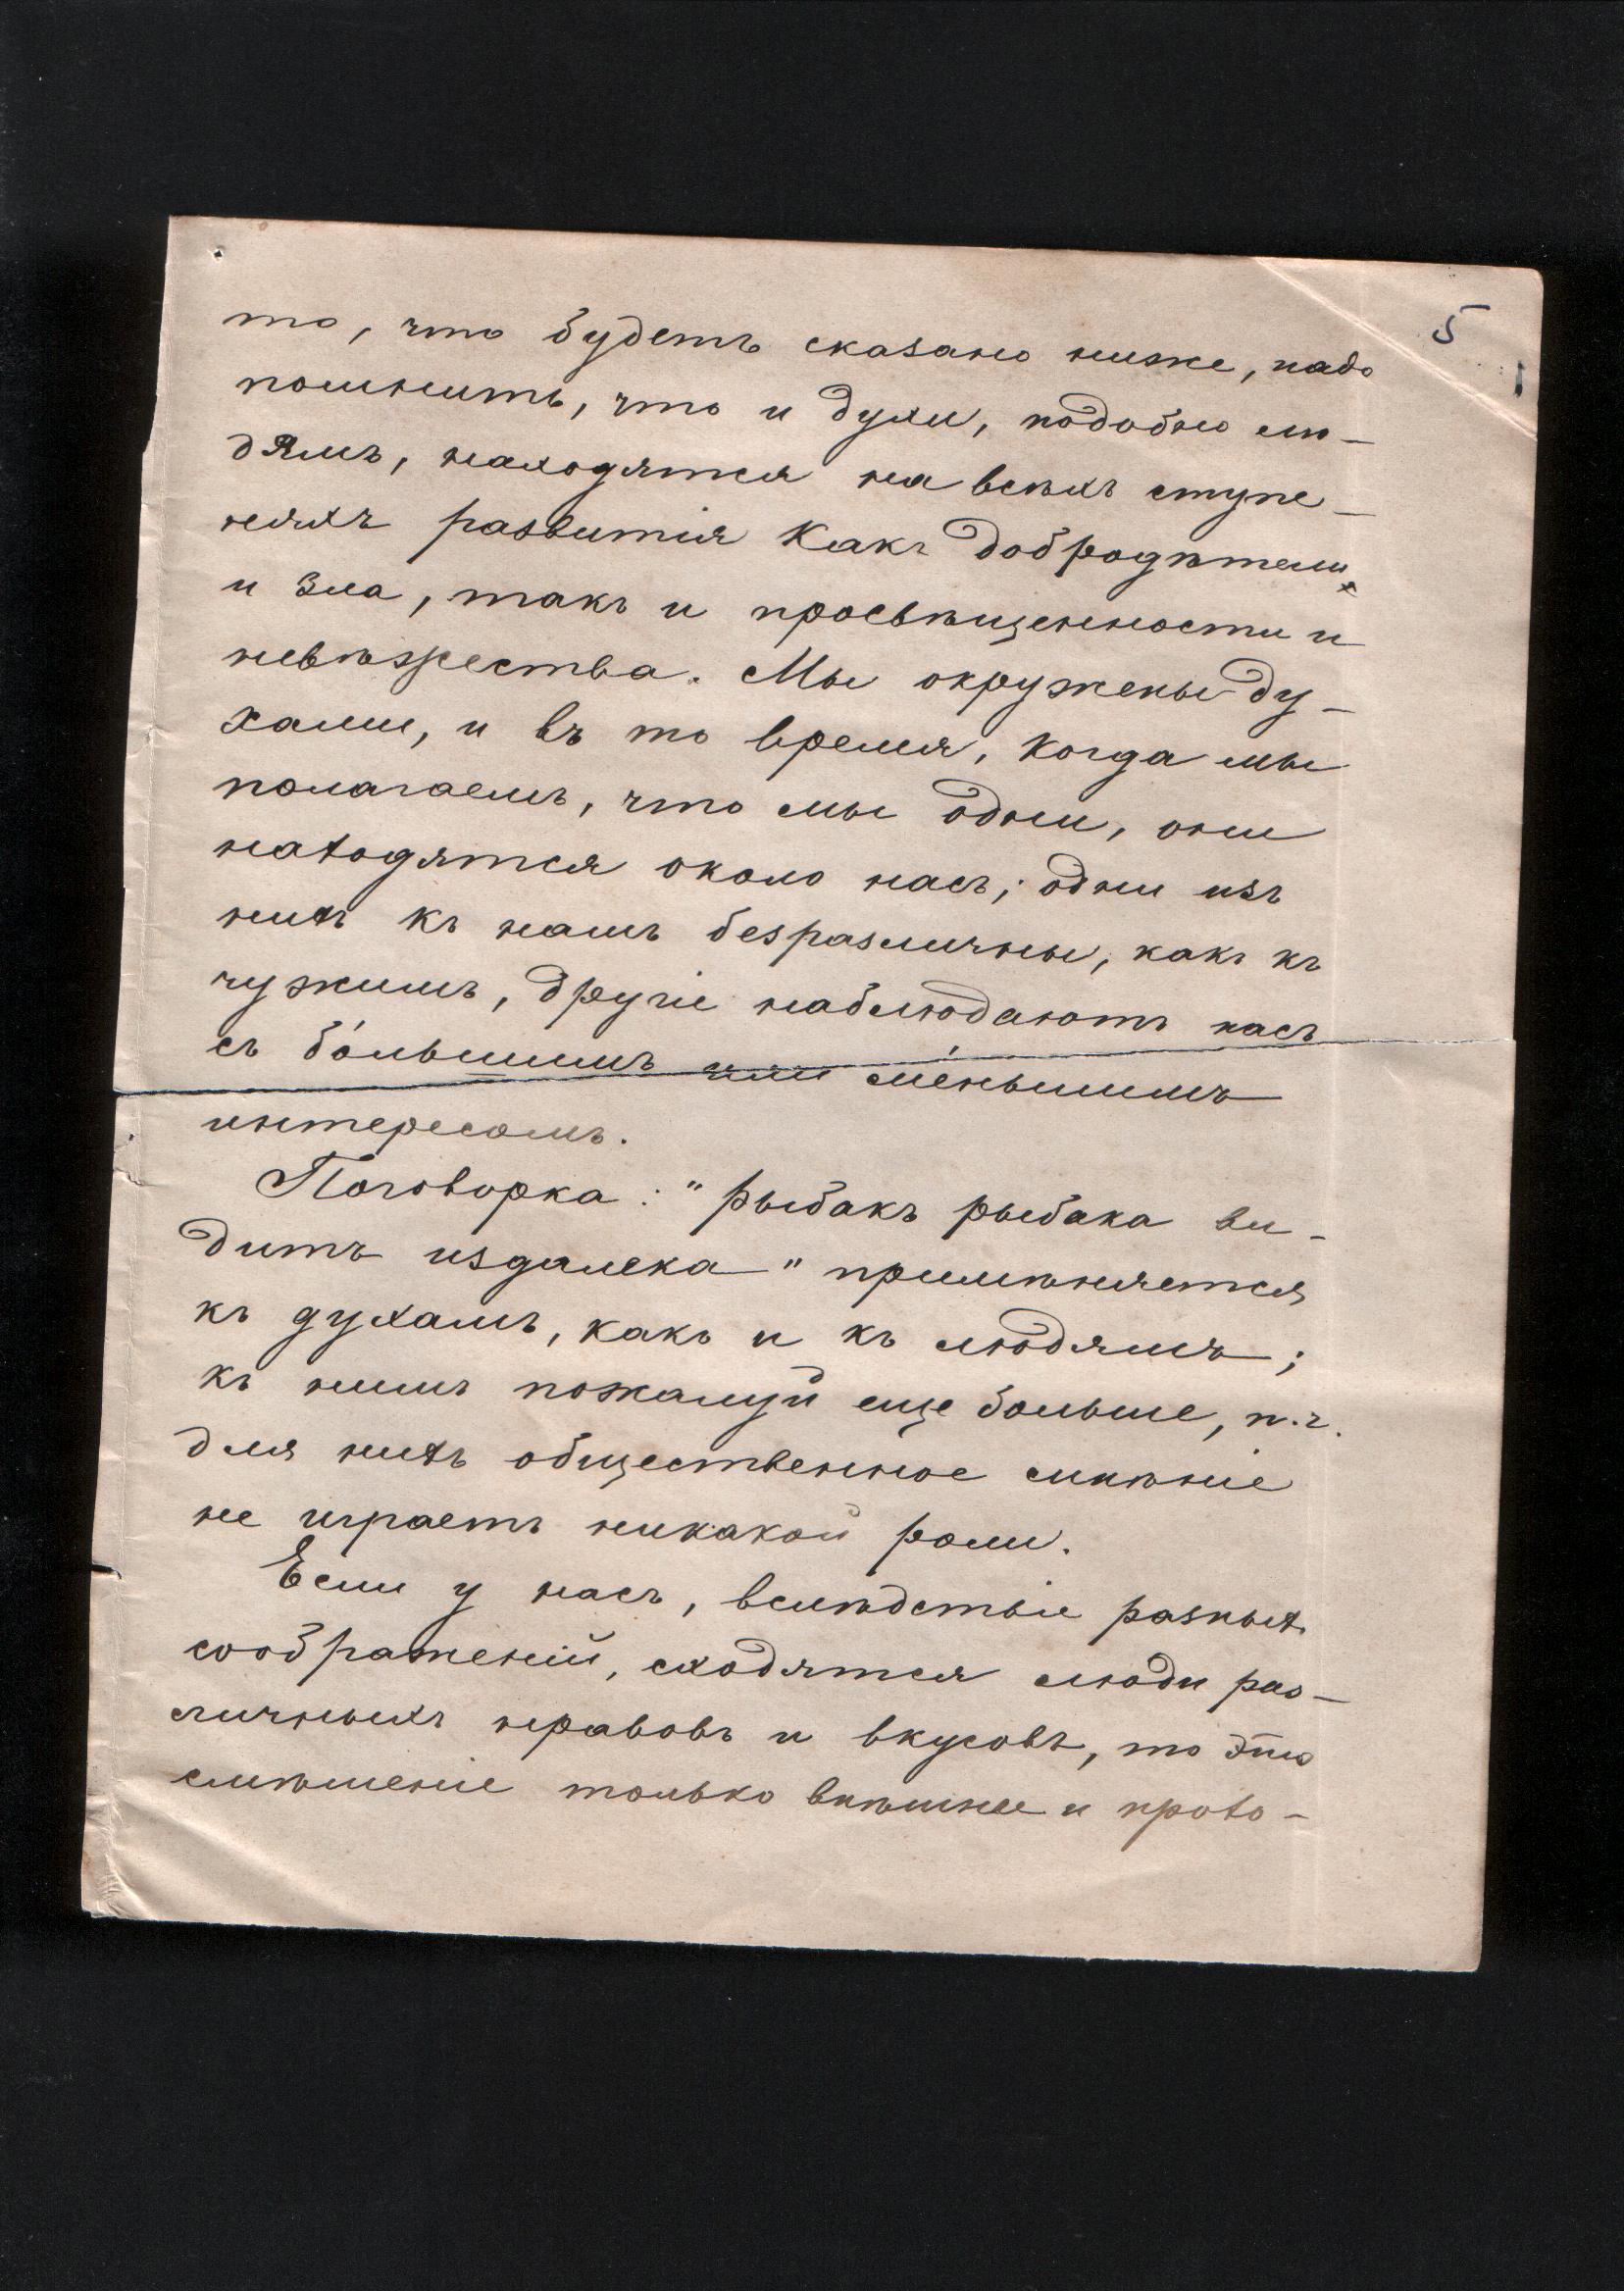 5
то, что будетъ сказано ниже, надо
помнить, что и духи, подобно лю-
дямъ, находятся на всѣхъ ступе-
няхъ развитія какъ добродѣтели
и зла, такъ и просвѣщенности и
невѣжества. Мы окружены ду-
хами, и въ то время, когда мы
полагаемъ, что мы одни, они
находятся около насъ; одни изъ
нихъ къ намъ безразличны, какъ къ
чужимъ, другіе наблюдаютъ насъ
съ бо́льшимъ или ме́ньшимъ
интересомъ.
Поговорка: "рыбакъ рыбака ви-
дитъ издалека" примѣняется
къ духамъ, какъ и къ людямъ;
къ нимъ пожалуй еще больше, п.ч.
для нихъ общественное мнѣніе
не играетъ никакой роли.
Если у насъ, вслѣдствіе разныхъ
соображеній, сходятся люди раз-
личныхъ нравовъ и вкусовъ, то это
смѣшеніе только внѣшнее и прохо-